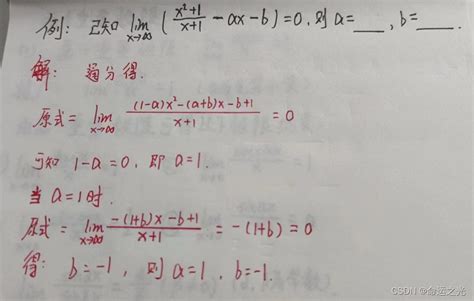 例: 已知 lim x→∞ (x²+1/x+1 - ax - b) = 0, 则 a=___, b=___.
解: 通分得.
原式 = lim x→∞ (1-a)x²-(a+b)x-b+1/x+1 = 0
可知 1-a=0, 即 a=1.
当 a=1时.
原式 = lim x→∞ -(1+b)x-b+1/x+1 = -(1+b) = 0
得: b=-1, 则 a=1, b=-1.
CSDN @命运之光